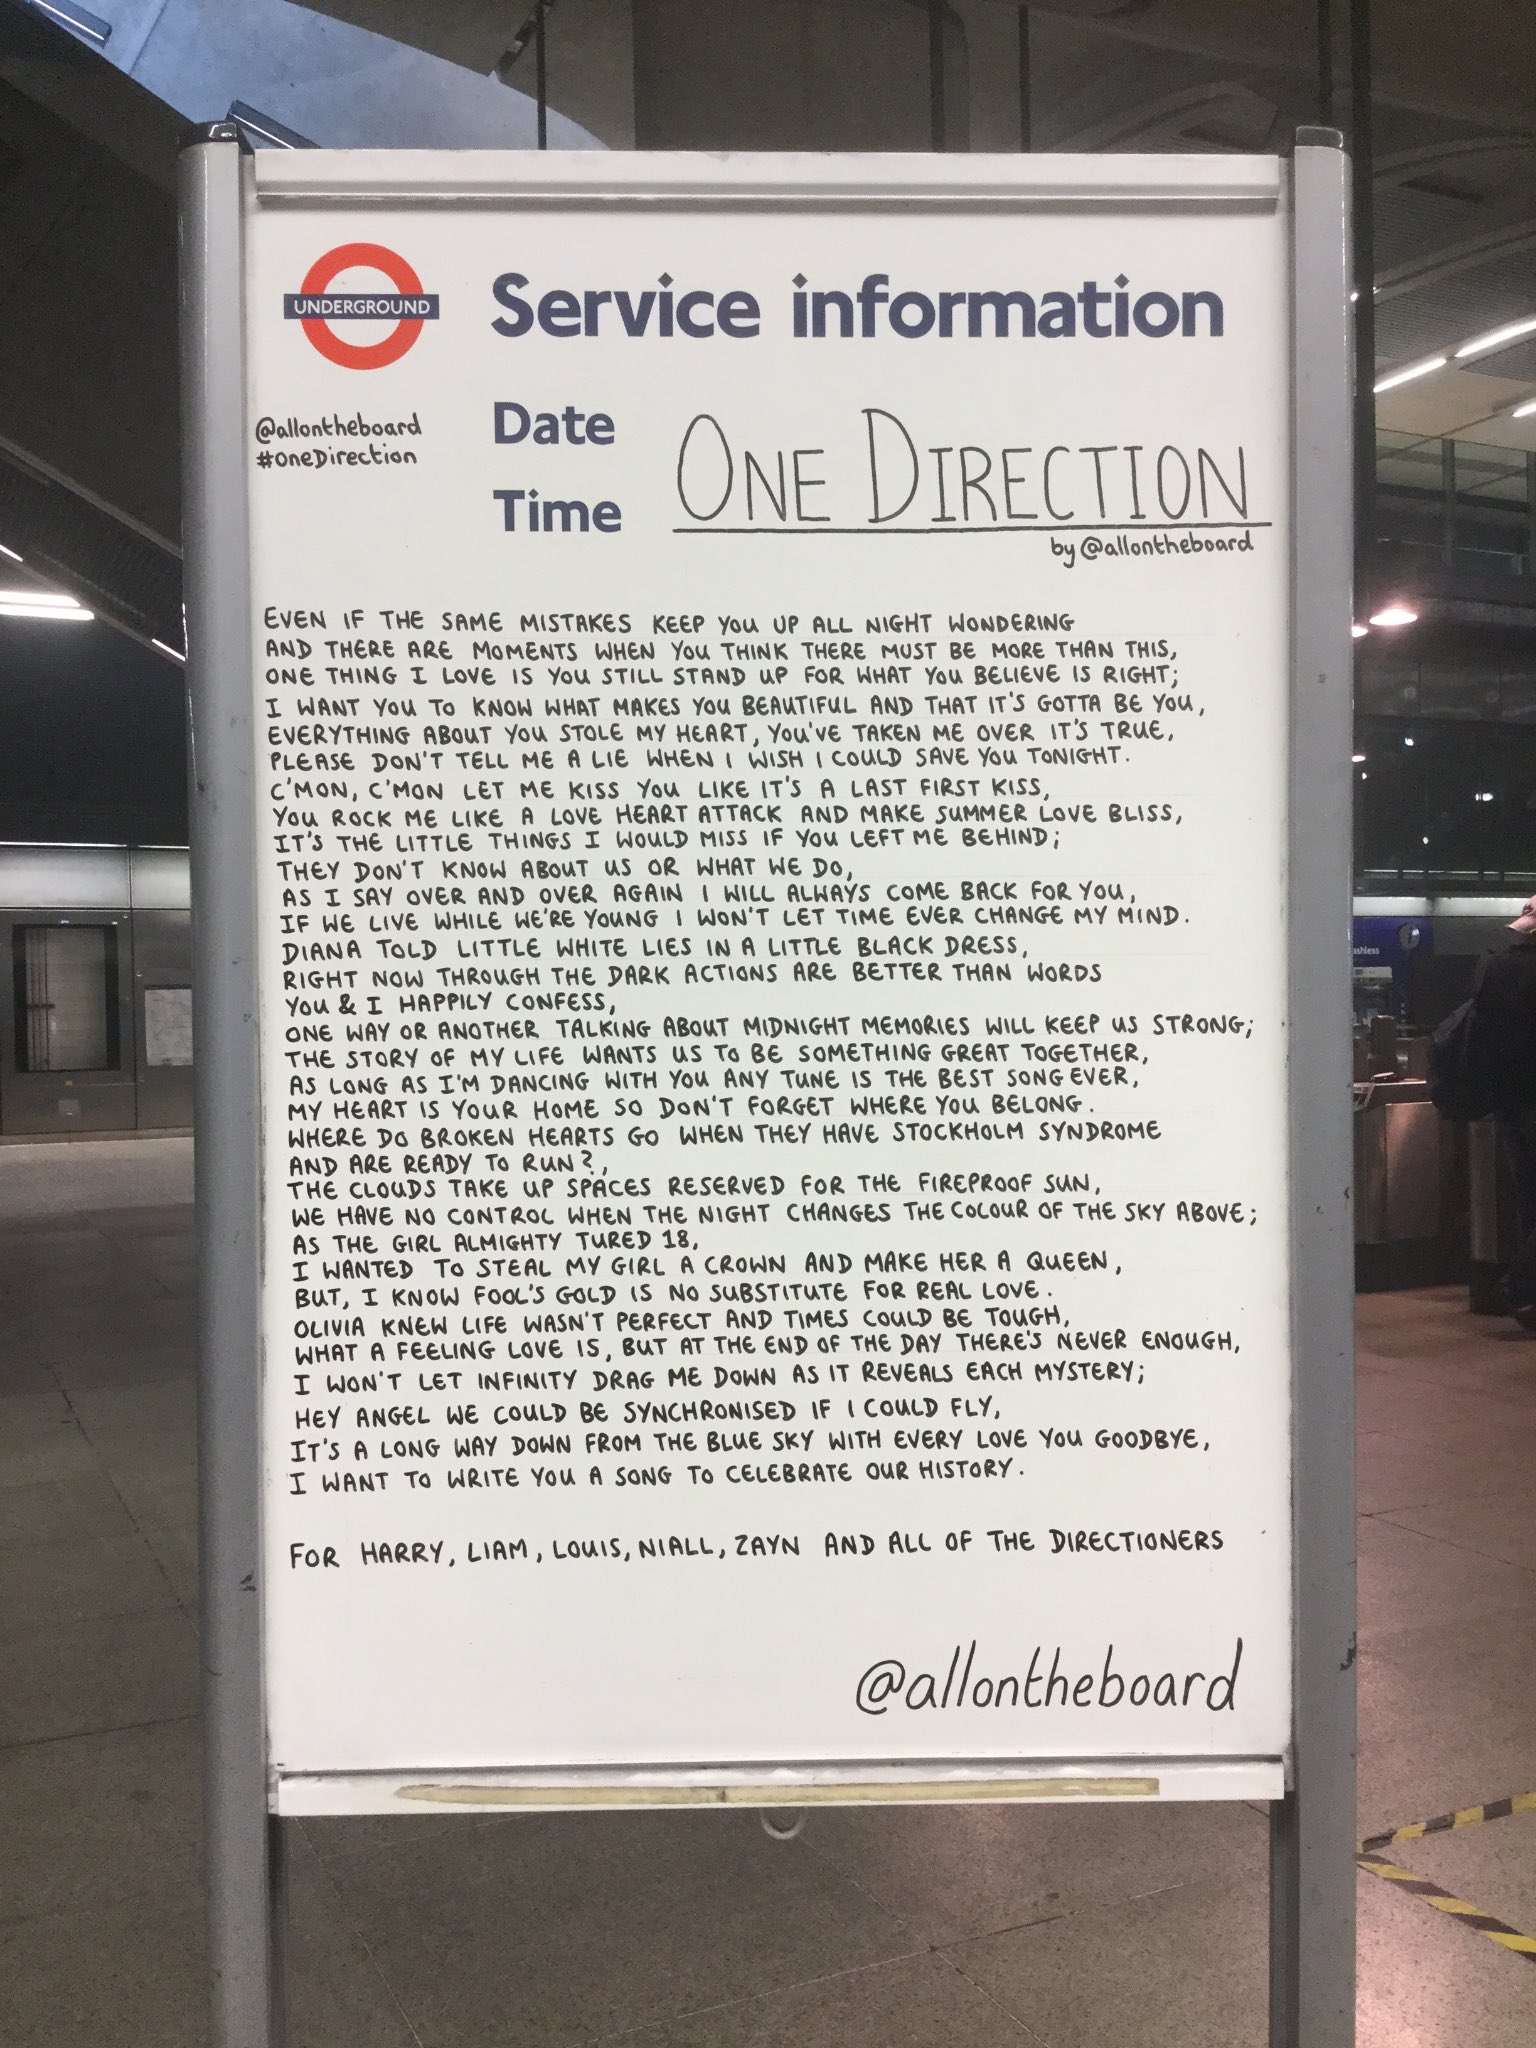 UNDERGROUND
Service information
@allontheboard
#OneDirection
Date
Time
ONE DIRECTION
by @allontheboard
EVEN IF THE SAME MISTAKES KEEP YOU UP ALL NIGHT WONDERING
AND THERE ARE MOMENTS WHEN YOU THINK THERE MUST BE MORE THAN THIS,
ONE THING I LOVE IS YOU STILL STAND UP FOR WHAT YOU BELIEVE IS RIGHT;
I WANT YOU TO KNOW WHAT MAKES YOU BEAUTIFUL AND THAT IT'S GOTTA BE YOU,
EVERYTHING ABOUT YOU STOLE MY HEART, YOU'VE TAKEN ME OVER IT'S TRUE,
PLEASE DON'T TELL ME A LIE WHEN I WISH I COULD SAVE YOU TONIGHT.
C'MON, C'MON LET ME KISS YOU LIKE IT'S A LAST FIRST KISS,
YOU ROCK ME LIKE A LOVE HEART ATTACK AND MAKE SUMMER LOVE BLISS,
IT'S THE LITTLE THINGS I WOULD MISS IF YOU LEFT ME BEHIND;
THEY DON'T KNOW ABOUT US OR WHAT WE DO,
AS I SAY OVER AND OVER AGAIN I WILL ALWAYS COME BACK FOR YOU,
IF WE LIVE WHILE WE'RE YOUNG I WON'T LET TIME EVER CHANGE MY MIND.
DIANA TOLD LITTLE WHITE LIES IN A LITTLE BLACK DRESS,
RIGHT NOW THROUGH THE DARK ACTIONS ARE BETTER THAN WORDS
YOU & I HAPPILY CONFESS,
ONE WAY OR ANOTHER TALKING ABOUT MIDNIGHT MEMORIES WILL KEEP US STRONG;
THE STORY OF MY LIFE WANTS US TO BE SOMETHING GREAT TOGETHER,
AS LONG AS I'M DANCING WITH YOU ANY TUNE IS THE BEST SONG EVER,
MY HEART IS YOUR HOME SO DON'T FORGET WHERE YOU BELONG.
WHERE DO BROKEN HEARTS GO WHEN THEY HAVE STOCKHOLM SYNDROME
AND ARE READY TO RUN?,
THE CLOUDS TAKE UP SPACES RESERVED FOR THE FIREPROOF SUN,
WE HAVE NO CONTROL WHEN THE NIGHT CHANGES THE COLOUR OF THE SKY ABOVE;
AS THE GIRL ALMIGHTY TURED 18,
I WANTED TO STEAL MY GIRL A CROWN AND MAKE HER A QUEEN,
BUT, I KNOW FOOL'S GOLD IS NO SUBSTITUTE FOR REAL LOVE.
OLIVIA KNEW LIFE WASN'T PERFECT AND TIMES COULD BE TOUGH,
WHAT A FEELING LOVE IS, BUT AT THE END OF THE DAY THERE'S NEVER ENOUGH,
I WON'T LET INFINITY DRAG ME DOWN AS IT REVEALS EACH MYSTERY;
HEY ANGEL WE COULD BE SYNCHRONISED IF I COULD FLY,
IT'S A LONG WAY DOWN FROM THE BLUE SKY WITH EVERY LOVE YOU GOODBYE,
I WANT TO WRITE YOU A SONG TO CELEBRATE OUR HISTORY.
FOR HARRY, LIAM, LOUIS, NIALL, ZAYN AND ALL OF THE DIRECTIONERS
@allontheboard